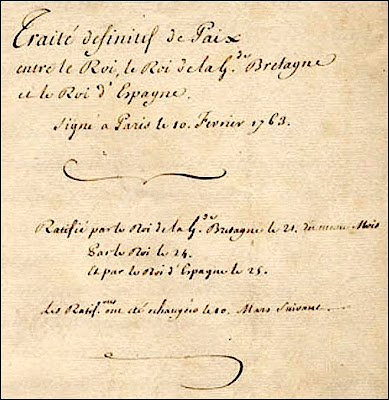 Traité definitif de Paix
entre le Roi, le Roi de la G.de Bretagne
et le Roi d'Espagne.
Signé à Paris le 10. Fevrier 1763.
Ratifié par le Roi de la G.de Bretagne le 21. du meme Mois
Par le Roi le 24.
Et par le Roi d'Espagne le 25.
Les Ratif.ons ont été echangées le 10. Mars Suivant.